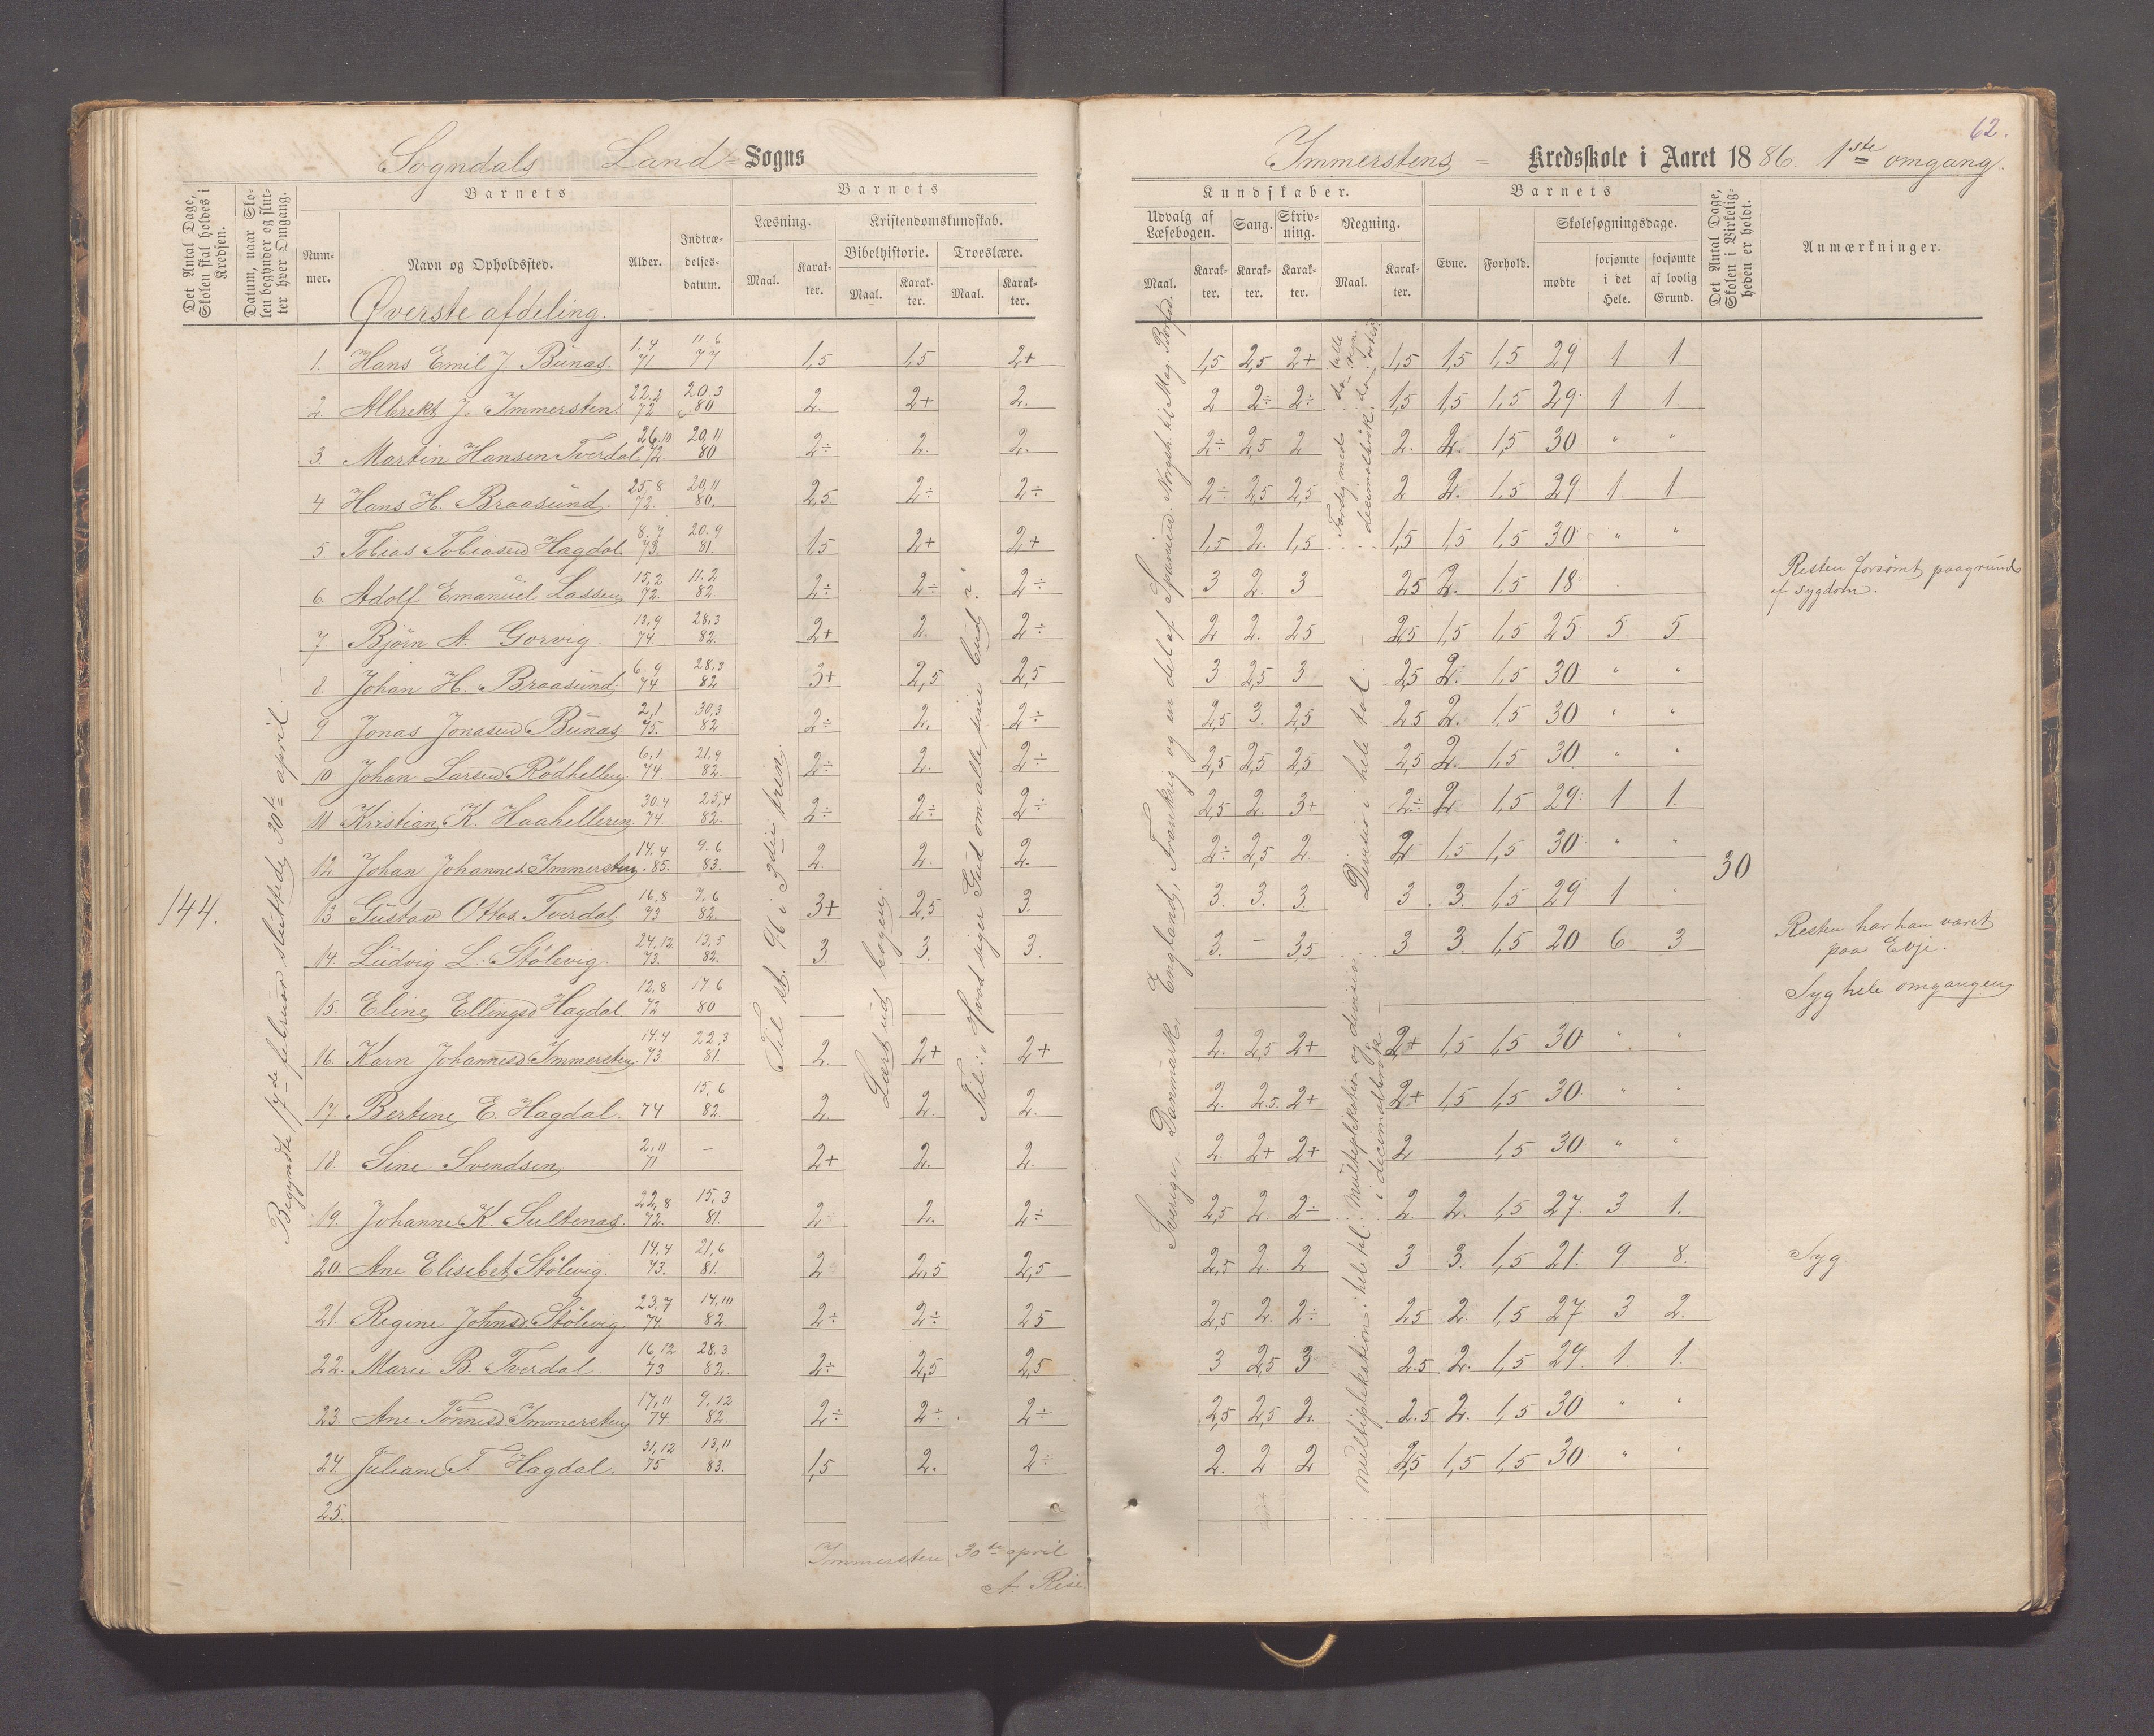 62.
Sogndals Land- Sogns
Immerstens - Kredsskole i Aaret 1886. 1ste omgang.
Det Antal Dage, Skolen skal holdes i Kredsen.
Datum, naar Skolen begynder og slutter hver Omgang.
Barnets
Nummer.
Navn og Opholdssted.
Alder.
Indtrædelsesdatum.
Barnets
Læsning.
Maal.
Karakter.
Kristendomskundskab.
Bibelhistorie.
Maal.
Karakter.
Troeslære.
Maal.
Karakter.
Kundskaber.
Udvalg af Læsebogen.
Maal.
Karakter.
Sang.
Karakter.
Skrivning.
Karakter.
Regning.
Maal.
Karakter.
Barnets
Evne.
Forhold.
Skolesøgningsdage.
mødte
forsømte i det Hele.
forsømte af lovlig Grund.
Det Antal Dage, Skolen i Virkeligheden er holdt.
Anmærkninger.
Øverste afdeling.
144.
Begyndte 17de februar sluttede 30te april.
Til st. 96 i 3die trin.
Lært ud bogen.
Til: "Hvad siger Gud om alle sine bud?"
Sverige, Danmark, England, Frankrig og en del af Spanien.
Divisio i hele tal.
Multiplikation i hele tal.
Multiplikation og division i decimalbrøk.
30
1. Hans Emil J. Bünas. 1.4 71 11.6 77 1,5 1,5 2+ 1,5 2,5 2+ 1,5 1,5 1,5 29 1 1.
2. Albrekt J. Immersten. 22,2 72 20.3 80 2. 2+ 2. 2 2÷ 2÷ 1,5 1,5 1,5 29 1 1.
3 Martin Hansen Tverdal 26.10 72. 20,11 80 2÷ 2. 2. 2÷ 2,5 2 2. 2. 1,5 30 " "
4 Hans H. Braasünd. 25,8 72. 20,11 80. 2,5 2÷ 2÷ 2÷ 2,5 2,5 2 2. 1,5 29 1. 1
5 Tobias Tobiasen Hagdal 8.7 73. 20.9 81. 1,5 2+ 2+ 1,5 2. 1,5 1,5 1,5 1,5 30 " "
6. Adolf Emanüel Lassen 15,2 72. 11.2 82. 2÷ 2÷ 2÷ 3 2. 3 25 2. 1,5 18 Resten forsømt paagrund af sygdom.
7 Björn A. Gorvig. 13,9 74. 28,3 82. 2+ 2. 2÷ 2 2. 25 2,5 1,5 1,5 25 5 5
8. Johan H. Braasünd. 6.9 74. 28,3 82 3+ 2,5 2,5 3 2,5 3 2,5 2. 1,5 30 " "
9 Jonas Jonasen Bünas 2,1 75. 30,3 82 2÷ 2. 2÷ 2,5 3. 2,5 2,5 2. 1,5 30 " "
10 Johan Larsen Rödhellen. 6.1 74 21.9 82. 2÷ 2. 2÷ 2,5 2,5 2,5 2,5 2. 1,5 30 " "
11 Kristian K. Haahelleren 30.4 74. 25,4 82. 2÷ 2÷ 2÷ 2,5 2. 3+ 2÷ 2 1,5 29 1 1.
12. Johan Johannes. Immersten. 14.4 85. 9.6 83. 2. 2. 2. 2÷ 2,5 2 2 1,5 1,5 30 " "
13 Güstav Ottos. Tverdal. 16,8 73 7,6 82. 3+ 2,5 3. 3. 3. 3. 3. 3. 1,5 29 1
14. Lüdvig L. Stölevig. 24,12. 73. 13,5 82. 3. 3. 3. 3. - 3,5 3 3. 1,5 20 6 3 Resten har han været paa Evje.
15. Eline Ellingsd Hagdal 12.8 72 17.6 80 Syg hele omgangen
16. Karn Johannesd Immersten. 14.4 73. 22,3 81. 2. 2+ 2+ 2. 2,5 2+ 2+ 1,5 1,5 30 " "
17. Bertine E. Hagdal. 74 15,6 82 2. 2. 2. 2. 2.5. 2+ 2+ 1,5 1,5 30 " "
18. Sine Svendsen 2,11 71 - 2+ 2. 2. 2. 2+ 2+ 2 1,5 30 " "
19. Johanne K. Sultenas. 22,8 72. 15,3 81. 2 2. 2÷ 2,5 2. 2÷ 2. 2. 1,5 27. 3 1.
20. Ane Elisebet Stölevig. 14.4 73. 21,6 81. 2 2,5 2,5 2,5 2. 2 3 3. 1,5 21. 9 8. Syg
21. Regine Johnsd. Stölevig. 23,7 74. 14,10 82 2÷ 2÷ 25 2,5 2. 2÷ 25 2. 1,5 27. 3 2.
22. Marie B. Tverdal 16,12 73 28.3 82. 2÷ 2,5 2,5 3 2,5 3 2.5 2. 1,5 29 1. 1.
23. Ane Tönnesd Immersten 17,11 74 9,12 82. 2÷ 2÷ 2÷ 2,5 2,5 2. 2.5 2. 1,5 30 " "
24. Juliane T. Hagdal. 31,12 75 13,11 83. 1,5 2. 2÷ 2. 2 2 2,5 1,5 1,5 30 " "
25.
Immersten 30te april
A. Rise.